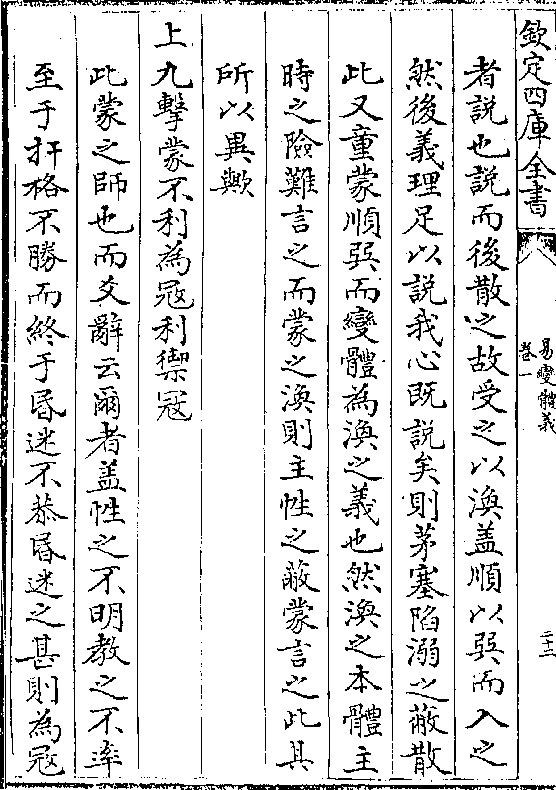 欽定四庫全書
易變體義
卷一
二十二
者説也説而後散之故受之以渙盖順以巽而入之
然後義理足以説我心既説矣則茅塞陷溺之蔽散
此又童蒙順巽而變體為渙之義也然渙之本體主
時之險難言之而蒙之渙則主性之蔽蒙言之此其
所以異歟
上九擊蒙不利為冦利禦冦
此蒙之師也而爻辭云爾者盖性之不明教之不率
至于扞格不勝而終于昬迷不恭昬迷之甚則為冦